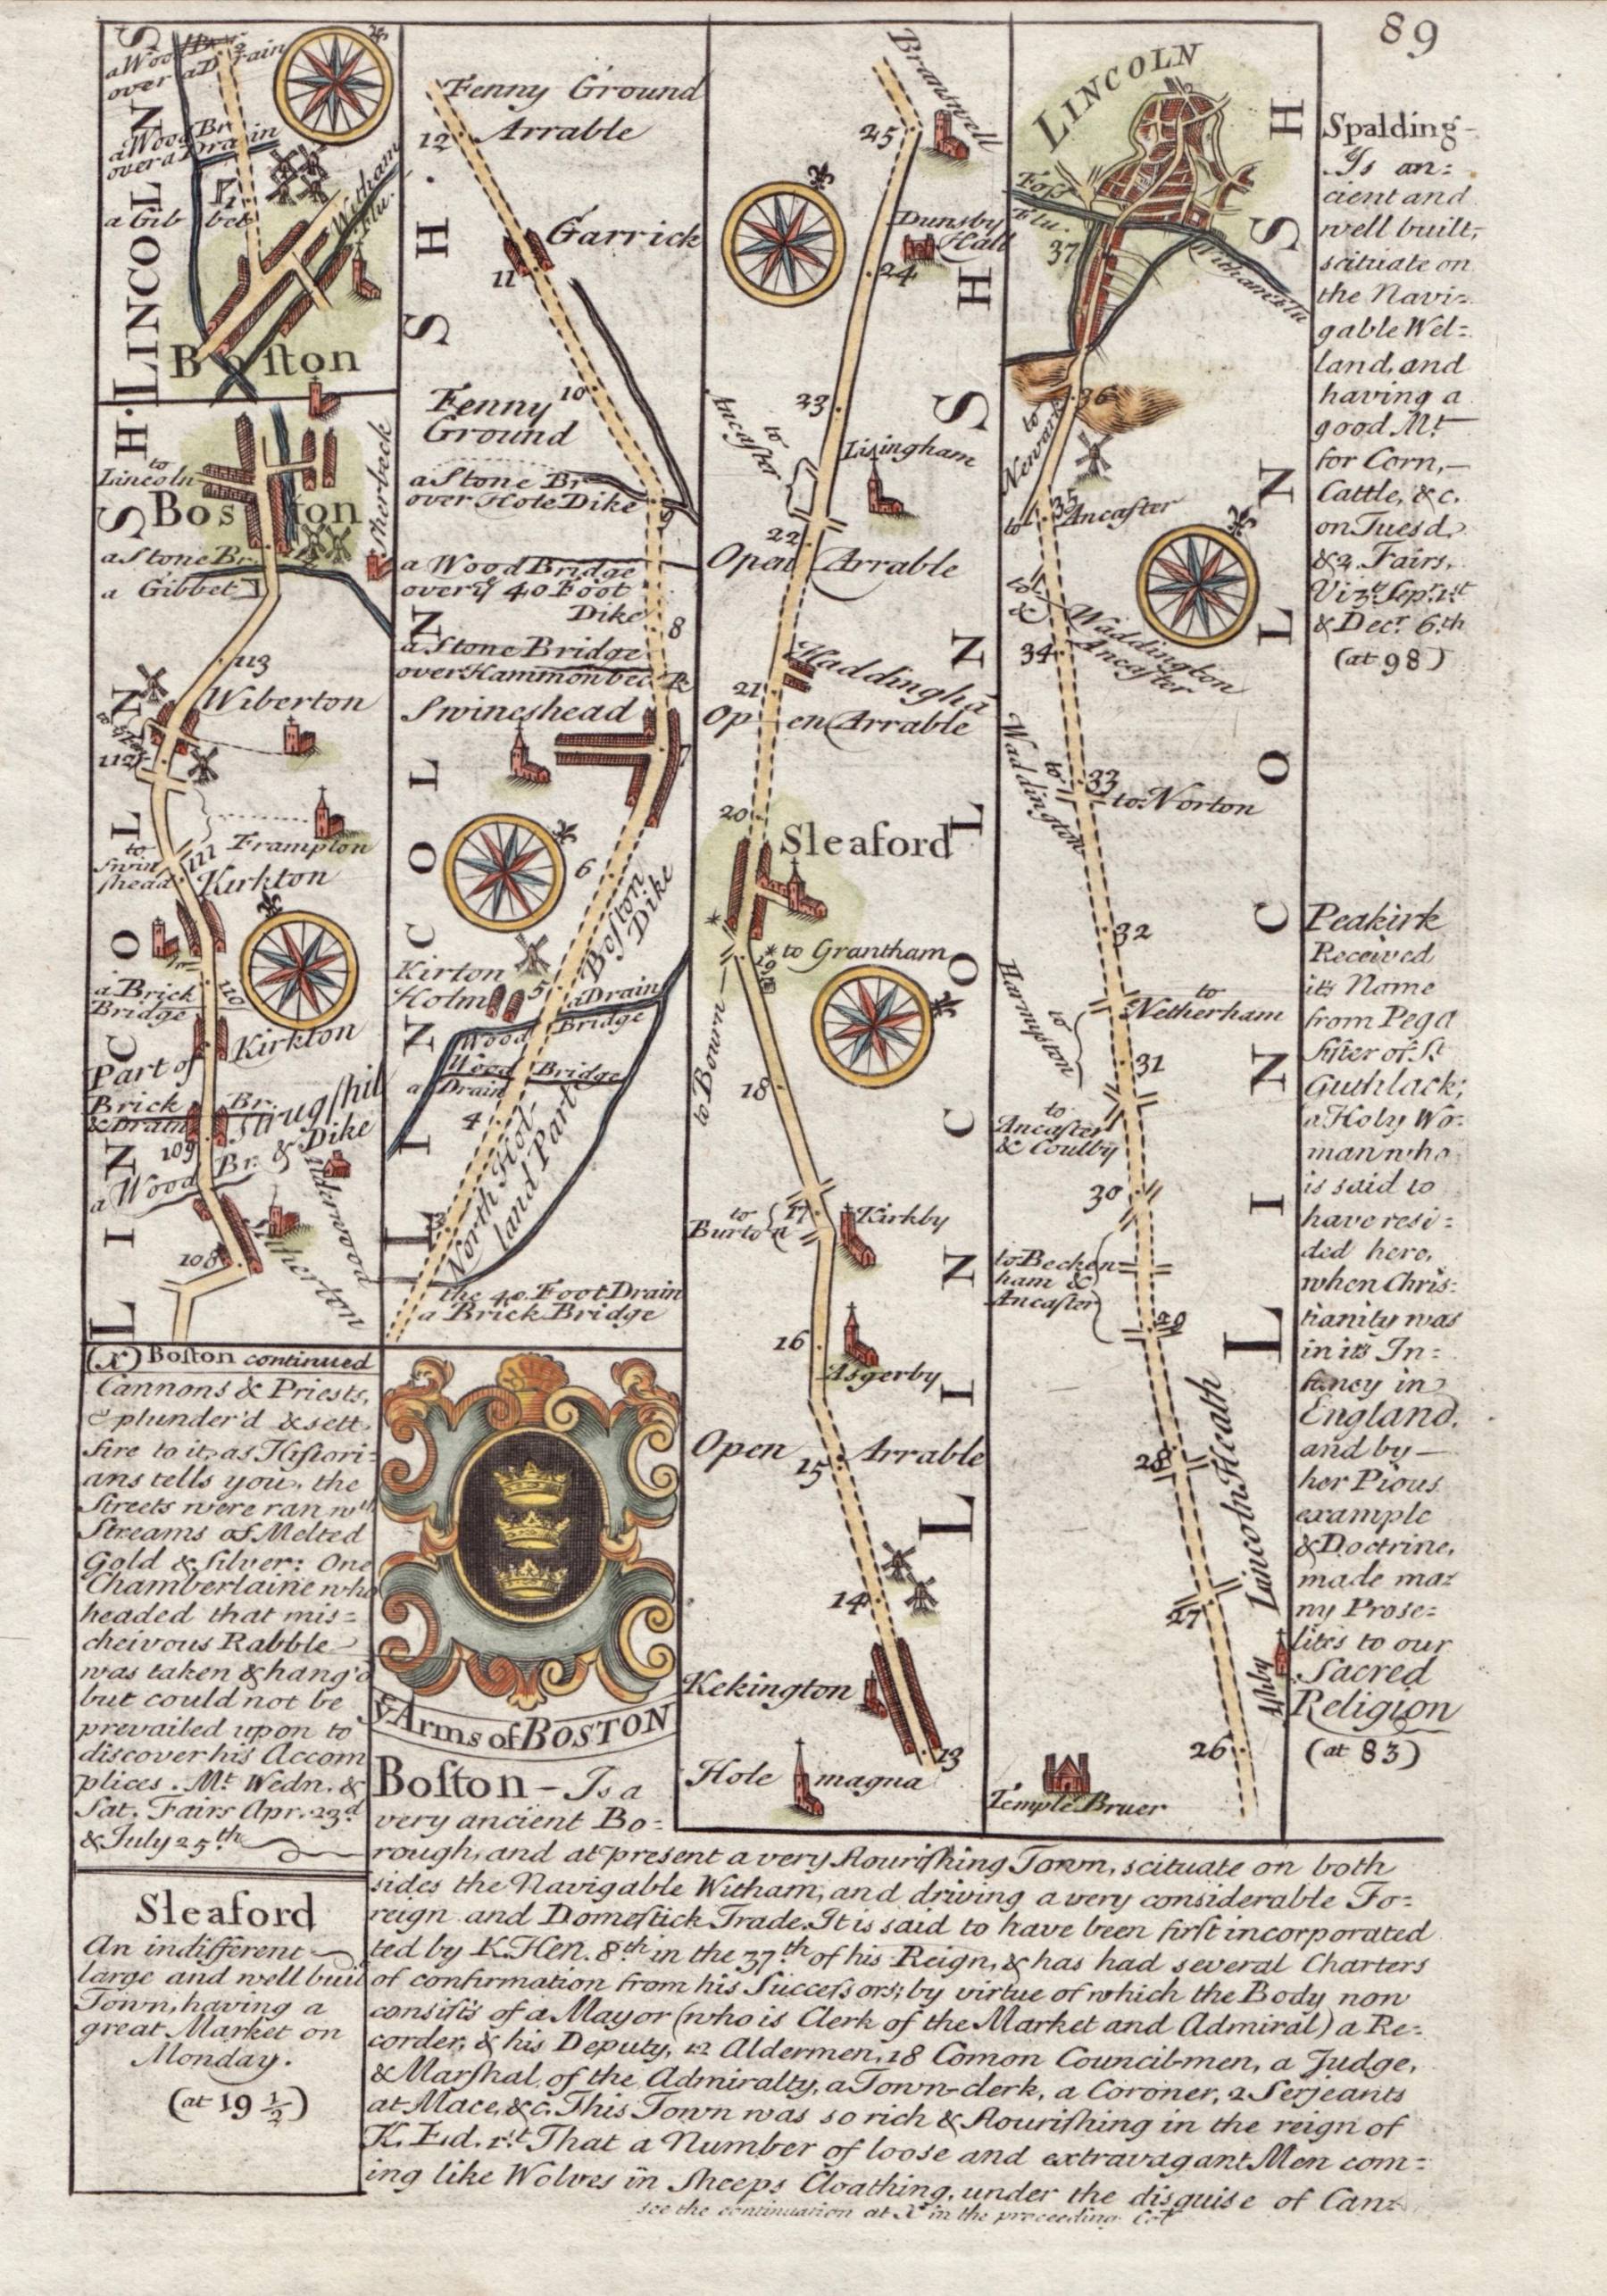 89
LINCOLNSH.
a Wood Br.
over a Drain
a Wood Br.
over a Drain
a Gib bet
Witham
Flu.
Boſton
to
Lincoln
Boston
Skerbeck
a Stone Br.
a Gibbet
113
Wiberton
112
Frampton
111
to
Swin
ſhead
Kirkton
110
a Brick
Bridge
Part of Kirkton
Brick Br.
& Drain
Strugſhil
109
a Wood Br. & Dike
Alderwood
108
Alherton
LINCOLNSH.
(X) Boſton continued
Cannons & Priests,
& plunder'd & sett
fire to it, as Hiſtori-
ans tells you, the
Streets were ran wth
Streams of Melted
Gold & Silver: One
Chamberlaine who
headed that mis=
cheivous Rabble
was taken & hang'd
but could not be
prevailed upon to
discover his Accom
plices. Mt. Wedn. &
Sat. Fairs Apr. 23d
& July 25th
Sleaford
An indifferent
large and well built
Town, having a
great Market on
Monday.
(at 19 ½)
Fenny Ground
12
Arrable
Garrick
11
10
Fenny
Ground
a Stone Br.
over Hole Dike
9
a Wood Bridge
over ye 40 Foot
Dike
8
a Stone Bridge
over Hammonbeck
Swineshead
7
6
Boſton
Dike
Kirton
Holm
5
a Drain
Wood Bridge
Wood Bridge
a Drain
4
North Hol-
land Part
3
the 40 Foot Drain
a Brick Bridge
LINCOLNSH.
ye Arms of BOSTON
Branswell
25
Dunsby
Hall
24
23
to
Ancaſter
Lisingham
22
Open Arrable
Haddinghã
21
Open Arrable
20
Sleaford
*
* to Grantham
19
to Bown
18
17
to
Burton
Kirkby
16
Asgerby
Open Arrable
15
14
Kekington
13
Hole magna
LINCOLNSH
LINCOLN
Foſs
Flu.
37
Witham flu
36
to
Newark
35
to Ancaſter
to
&
Waddington
Ancaſter
34
33
to
Waddington
to Norton
32
to
Netherham
to
Harmyston
31
to
Ancaſter
& Coulby
30
to Becken
ham &
Ancaſter
29
28
Lincoln Heath
27
Ashby
26
Temple Bruer
LINCOLNSH
Spalding-
Is an=
cient and
well built,
scituate on
the Navi=
gable Wel=
land, and
having a
good Mt.
for Corn,
Cattle, &c.
on Tuesd.
& 2 Fairs,
Vizt. Sepr. 1st
& Decr. 6th
(at 98)
Peakirk
Received
its Name
from Pega
Siſter of St.
Guthlack;
a Holy Wo=
man who
is said to
have resi=
ded here,
when Chris=
tianity was
in its In=
fancy in
England,
and by
her Pious
example
& Doctrine,
made ma=
ny Prose=
lites to our
Sacred
Religion
(at 83)
Boſton - Is a
very ancient Bo=
rough, and at present a very flouriſhing Town, scituate on both
sides the Navigable Witham, and driving a very considerable Fo=
reign and Domeſtick Trade. It is said to have been firſt incorporated
ted by K. Hen. 8th in the 37th of his Reign, & has had several Charters
of confirmation from his Succeſsors; by virtue of which the Body now
consiſts of a Mayor (who is Clerk of the Market and Admiral) a Re=
corder, & his Deputy, 12 Aldermen, 18 Comon Council-men, a Judge,
& Marſhal of the Admiralty, a Town-clerk, a Coroner, 2 Serjeants
at Mace, &c. This Town was so rich & flouriſhing in the reign of
K. Ed. 1st. That a Number of loose and extravagant Men com=
ing like Wolves in Sheeps Cloathing, under the disguise of Can=
see the continuation at X in the proceeding Col